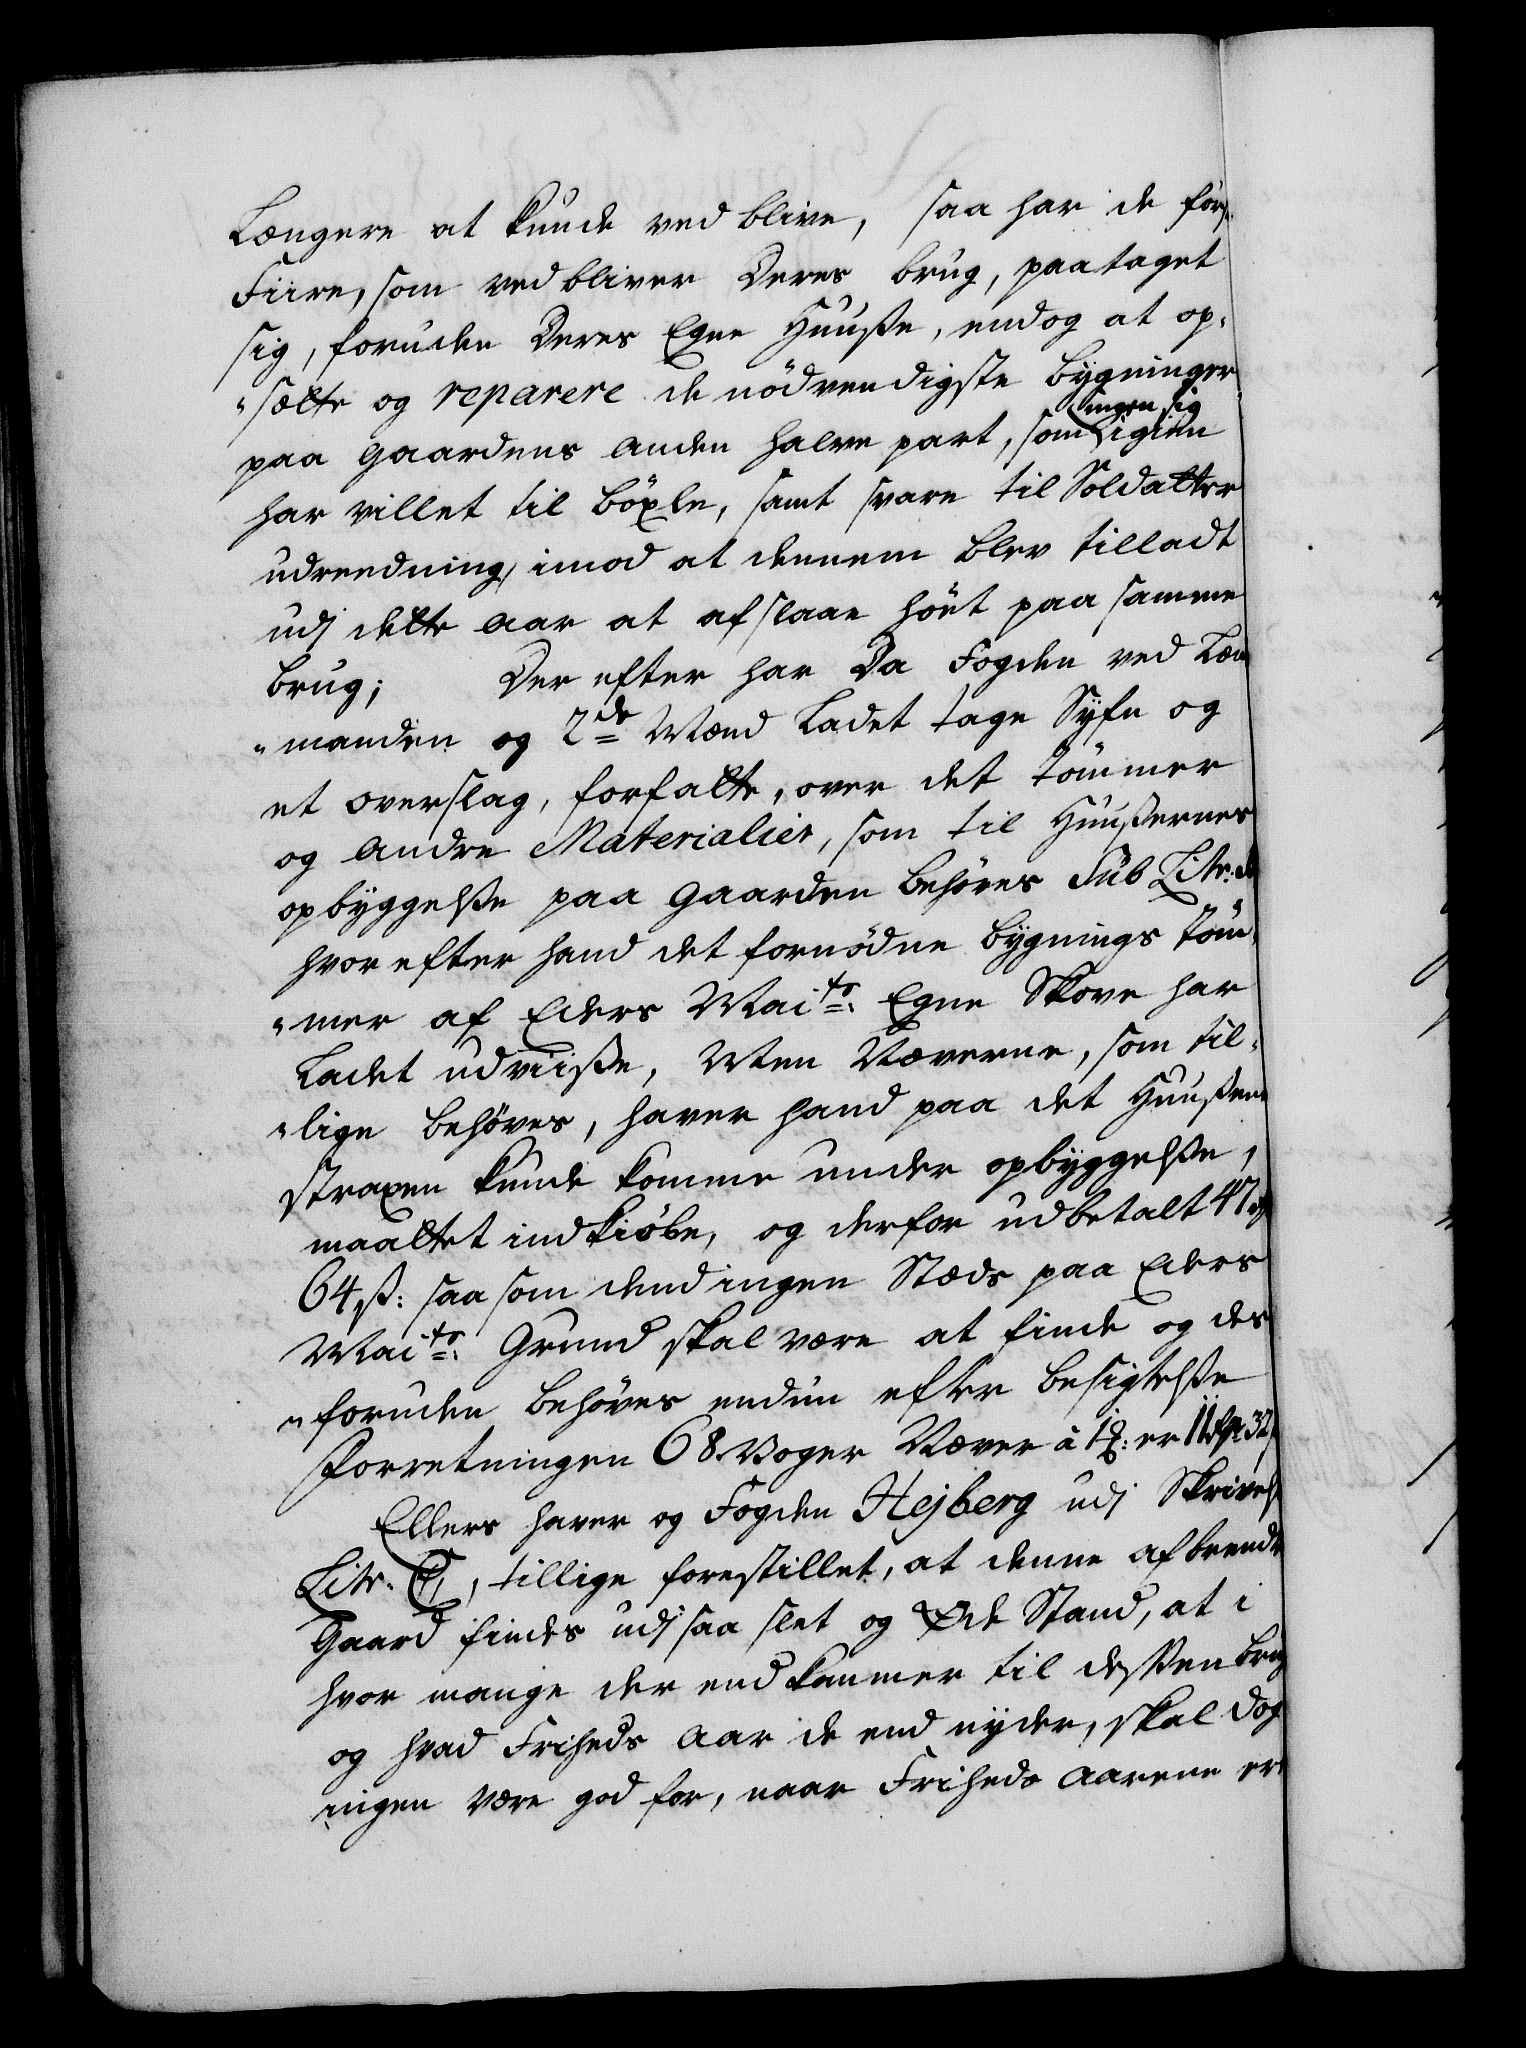 Længere at kunde ved blive, saa har de førs
Fiire, som ved bliver Deres brug, paataget
sig, foruden Deres Egne Huuße, endog at op¬
„sætte og reparere de nödvendigste bygninger
paa gaardens anden halve part, som ingen sig igien
har villet til böxle, samt svare til Soldatter
udreedning, imod at dennem blev tilladt
udj dette aar at afslaae höet paa samme
brug; Der efter har Da Fogden ved Læn
„manden og 2de Mænd Ladet tage Syfn og
et overslag, forfatte, over det Tömmer
og andre Materialier, som til Huußernes
opbyggelße paa gaarden behöves sub Litr:
hvor efter hand det fornödne bygnings Töm¬
„mer af Eders Maits: Egne Skove har
Ladet udviiße, Men Næverne, som til¬
„lige behöves, haver hand paa det Huußene
straxen kunde komme under opbyggelße,
maattet indkiöbe, og derfor udbetalt 47 rd
64 ß: saasom dend ingen Stæds paa Eders
Maits: Grund skal være at finde og des
„foruden behöves endnu efter besigtelße
Forretningen 68 Voger Næver à 1 : er 11 rdr 32
Ellers haver og Fogden Hejberg udj Skrivels
Litr. , tillige forestillet, at denne afbrendte
Gaard findes udj saa slet og Øde Stand, at i
hvor mange der end kommer til deßen brug
og hvad Friheds aar de end nyder, skal dog
ingen være god for, naar Friheds aarene er